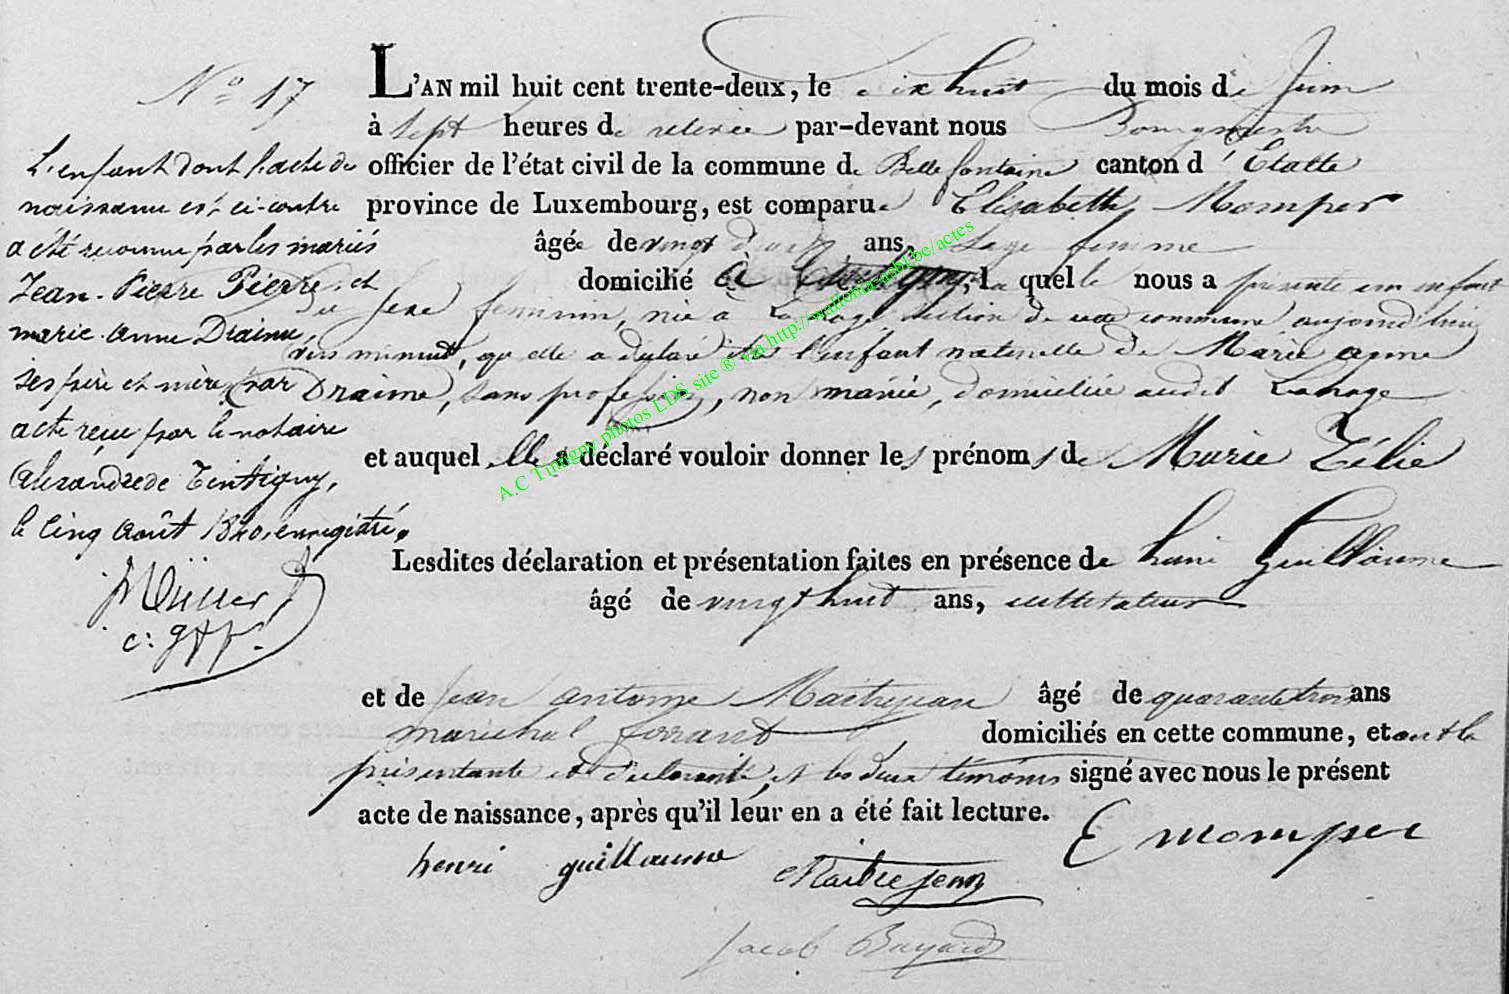 N° 17
L'enfant dont l'acte de
naissance est ci-contre
a été reconnu par les mariés
Jean-Pierre Pierre et
marie anne Draime,
ses père et mère, par
acte reçu par le notaire
Alexandre de Tintigny,
le cinq août 1840, enregistré.
L'AN mil huit cent trente-deux, le dix huit du mois de Juin
à sept heures de relevée par-devant nous Bourgmestre
officier de l'état civil de la commune de Bellefontaine canton d'Etalle
province de Luxembourg, est comparue Elizabeth Momper
âgée de vingt ans, sage femme
domicilié à Tintigny, la quelle nous a présenté un enfant
du sexe féminin, née à Lahage, section de cette commune aujourd'hui
, qu'elle a déclaré être l'enfant naturelle de Marie anne
Draime, sans profession, non mariée, domiciliée audit Lahage
et auquel elle a déclaré vouloir donner les prénoms de Marie Zélie
Lesdites déclaration et présentation faites en présence de henri Guillaume
âgé de vingt huit ans, cultivateur
et de Jean antoine Maitrejean âgé de quarante trois ans
marechal ferrant, domiciliés en cette commune, et ont la
présentante et déclarante, et les deux témoins signé avec nous le présent
acte de naissance, après qu'il leur en a été fait lecture.
E momper
henri guillaume
Maitrejean
Jacob Buyard
A.C Tintigny photos LDS site ® via http://wallonia-asbl.be/actes